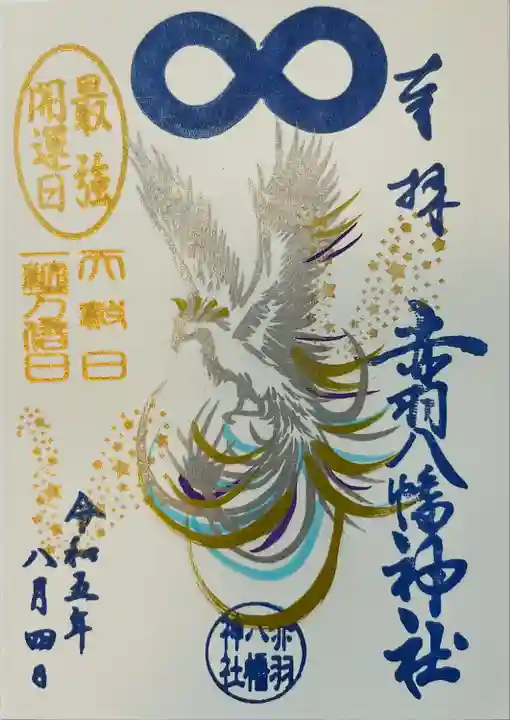 奉拝
赤羽八幡神社
最強
開運日
天赦日
一粒万倍日
令和五年
八月四日
赤羽
八幡
神社